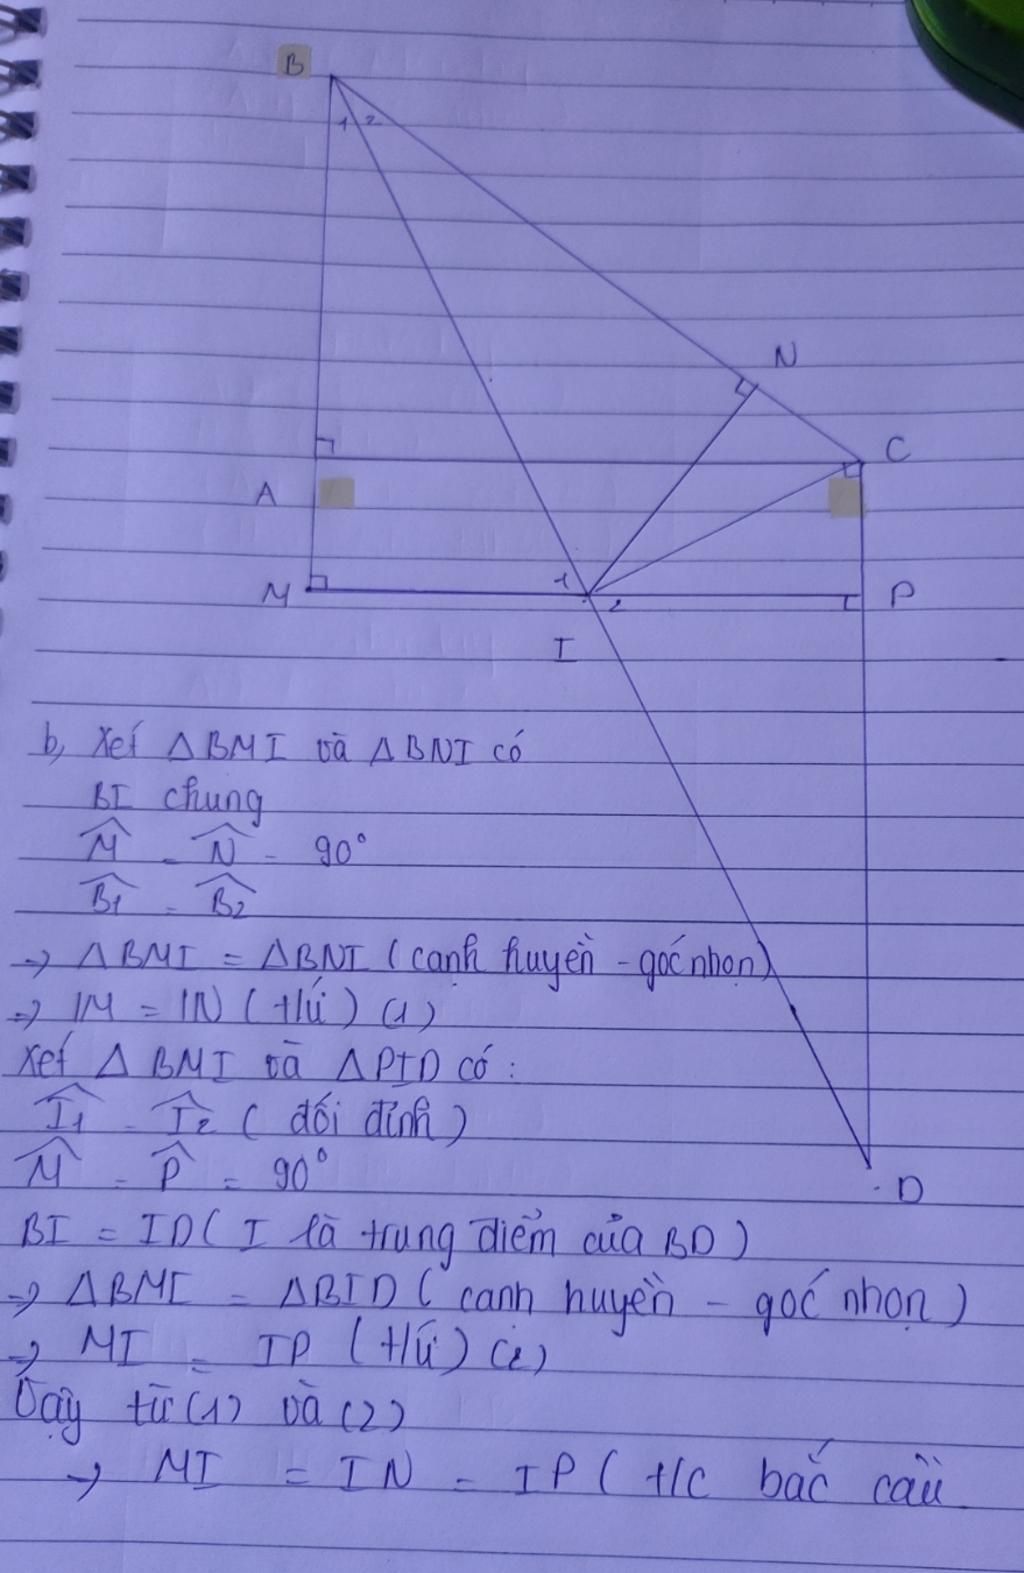 B
1 2
N
C
A
M
1
2
P
I
b, Xét ΔBMI và ΔBNI có
BI chung
M̂ = N̂ = 90°
B̂1 = B̂2
→ ΔBMI = ΔBNI (cạnh huyền - góc nhọn)
→ IM = IN (t/ứ) (1)
Xét Δ BMI và ΔPID có:
Î1 = Î2 ( đối đỉnh )
M̂ = P̂ = 90°
D
BI = ID ( I là trung điểm của BD )
→ ΔBMI = ΔBID ( cạnh huyền - góc nhọn )
→ MI = IP (t/ứ) (2)
Vậy từ (1) và (2)
→ MI = IN = IP ( t/c bắc cầu